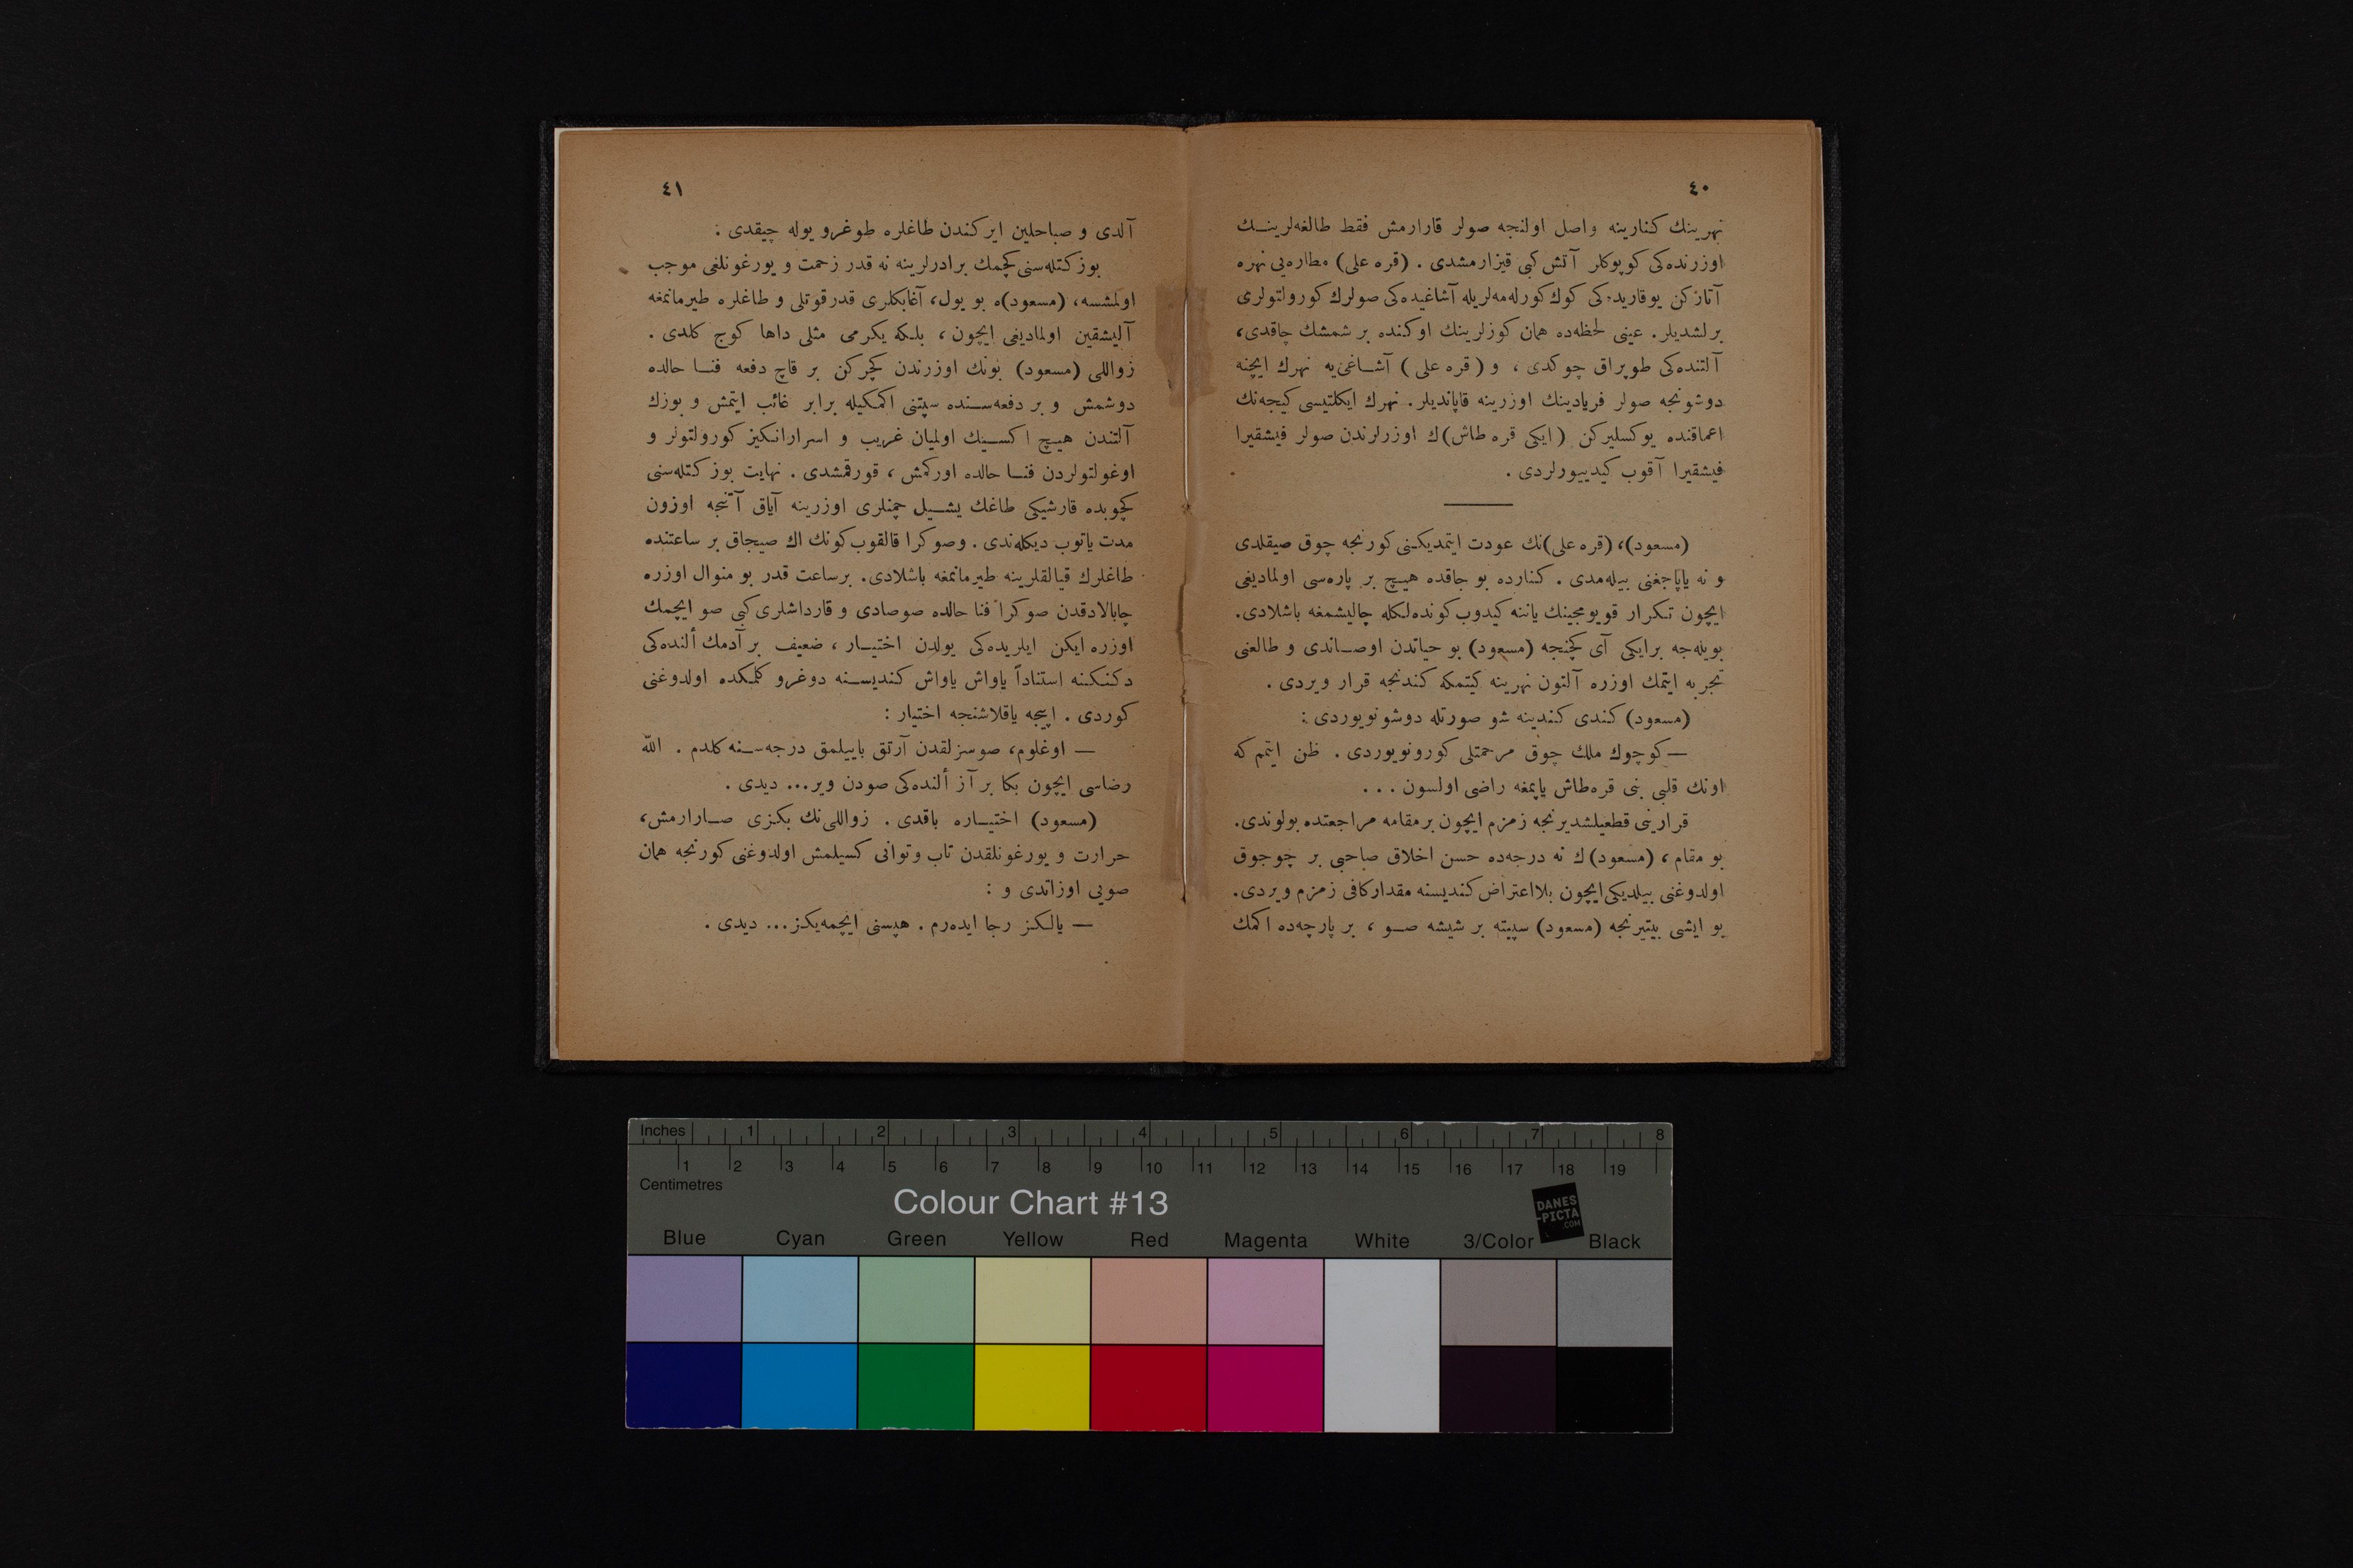 ٤٠
نهرينك كنارينه واصل اولنجه صولر قارارمش فقط طالغه‌لرينـك
اوزرنده‌كى كوپوكلر آتش كبى قيزارمشدى . (قره على) مطاره‌يى نهره
آتاركن يوقاريده‌كى كوك كورله‌مه‌لريله آشاغيده‌كى صولرك كورولتولرى
برلشديلر. عينى لحظه‌ده همان كوزلرينك اوكنده بر شمشك چاقدى،
آلتنده‌كى طوپراق چوكدى ، و ( قره على ) آشـاغى‌يه نهرك ايچنه
دوشونجه صولر فريادينك اوزرينه قاپانديلر. نهرك ايكلتيسى كيجه‌نك
اعماقنده يوكسليركن (ايكى قره طاش)ك اوزرلرندن صولر فيشقيرا
فيشقيرا آقوب كيدييورلردى .
(مسعود)، (قره على)نك عودت ايتمديكنى كورنجه چوق صيقلدى
و نه ياپاجغنى بيله‌مدى . كنارده بوجاقده هيـچ بر پاره‌سى اولماديغى
ايچون تكرار قويومجينك ياننه كيدوب كونده‌لكله چاليشمغه باشلادى.
بويله‌جه برايكى آى كچنجه (مسعود) بو حياتدن اوصـاندى و طالعنى
تجربه ايتمك اوزره آلتون نهرينه كيتمكه كندنجه قرار ويردى .
(مسعود) كندى كندينه شو صورتله دوشونويوردى :
— كوچوك ملك چوق مرحمتلى كورونويوردى . ظن ايتمم كه
اونك قلبى بنى قره‌طاش ياپمغه راضى اولسون ...
قرارينى قطعيلشديرنجه زمزم ايچون برمقامه مراجعتده بولوندى.
بو مقام ، (مسعود)ك نه درجه‌ده حسن اخلاق صاحبى بر چوجوق
اولدوغنى بيلديكى ايچون بلااعتراض كنديسنه مقداركافى زمزم ويردى.
بو ايشى بيتيرنجه (مسعود) سپيته بر شيشه صـو ، بر پارچه‌ده اكمك
٤١
آلدى و صباحلين ايركندن طاغلره طوغرو يوله چيقدى :
بوز كتله‌سنى كچمك برادرلرينه نه قدر زحمت و يورغونلغى موجب
اولمشسه، (مسعود)ه بو يول، آغابكلرى قدر قوتلى و طاغلره طيرمانمغه
آليشقين اولماديغى ايچون ، بلكه يكرمى مثلى داها كوج كلدى .
زواللى (مسعود) بونك اوزرندن كچركن بر قاچ دفعه فنـا حالده
دوشمش و بر دفعه‌سـنده سپتنى اكمكيله برابر غائب ايتمش و بوزك
آلتندن هيـچ اكسـيك اولميان غريب و اسرارانكيز كورولتولر و
اوغولتولردن فنـا حالده اوركمش ، قورقمشدى . نهايت بوز كتله‌سنى
كچوبده قارشيكى طاغك يشـيل چمنلرى اوزرينه آياق آتنجه اوزون
مدت ياتوب ديكله‌ندى . وصوكرا قالقوب كونك اك صيجاق بر ساعتنده
طاغلرك قيالقلرينه طيرمانمغه باشلادى. برساعت قدر بو منوال اوزره
چابالادقدن صوكرا فنا حالده صوصادى و قارداشلرى كبى صو ايچمك
اوزره ايكن ايلريده‌كى يولدن اختيـار ، ضعيف بر آدمك ألنده‌كى
دكنكنه استناداً ياواش ياواش كنديسـنه دوغرو كلمكده اولدوغنى
كوردى . اييجه ياقلاشنجه اختيار :
— اوغلوم، صوسزلقدن آرتق باييلمق درجه‌سـنه كلدم . الله
رضاسى ايچون بكا بر آز ألنده‌كى صودن وير... ديدى .
(مسعود) اختيـاره باقدى . زواللى‌نك بكزى صـارارمش،
حرارت و يورغونلقدن تاب وتوانى كسيلمش اولدوغنى كورنجه همان
صويى اوزاتدى و :
— يالكز رجا ايده‌رم . هپسنى ايچمه‌يكز... ديدى .
Inches 1 2 3 4 5 6 7 8
1 2 3 4 5 6 7 8 9 10 11 12 13 14 15 16 17 18 19
Centimetres
Colour Chart #13
DANES
-PICTA
.COM
Blue Cyan Green Yellow Red Magenta White 3/Color Black